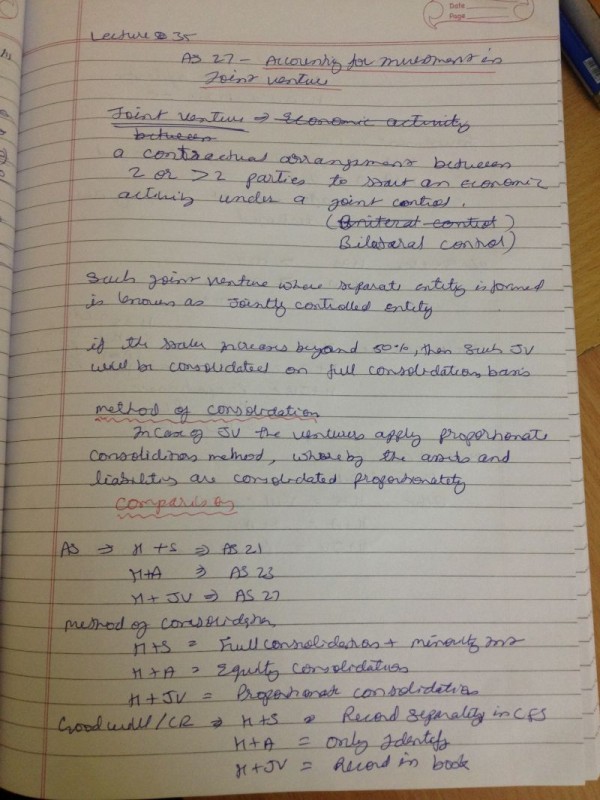 Date
Page
Lecture 35
AS 27 - Accounting for investment in
Joint venture
Joint venture ⇒ Economic activity
between
a contractual arrangement between
2 or >2 parties to start an economic
activity under a joint control.
(Uniteral control)
Bilateral control)
Such Joint venture where separate entity is formed
is known as Jointly controlled entity
if the stake increases beyond 50%, then such JV
will be consolidated on full consolidation basis
method of consolidation
In case of JV the venturers apply proportionate
consolidation method, whereby the assets and
liabilities are consolidated proportionately
Comparison
AS ⇒ H+S ⇒ AS 21
H+A ⇒ AS 23
H+JV ⇒ AS 27
method of consolidation
H+S = Full consolidation + minority int
H+A = Equity consolidation
H+JV = Proportionate consolidation
Goodwill/CR ⇒ H+S = Record separately in CFS
H+A = only Identify
H+JV = Record in book